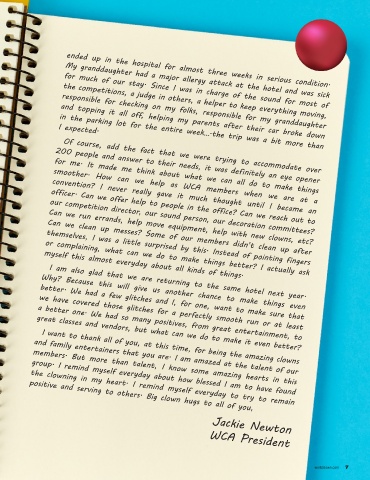 ended up in the hospital for almost three weeks in serious condition.
My granddaughter had a major allergy attack at the hotel and was sick
for much of our stay. Since I was in charge of the sound for most of
the competitions, a judge in others, a helper to keep everything moving,
responsible for checking on my folks, responsible for my granddaughter
and topping it all off, helping my parents after their car broke down
in the parking lot for the entire week...the trip was a bit more than
I expected.
Of course, add the fact that we were trying to accommodate over
200 people and answer to their needs, it was definitely an eye opener
for me. It made me think about what we can all do to make things
smoother. How can we help as WCA members when we are at a
convention? I never really gave it much thought until I became an
officer. Can we offer help to people in the office? Can we reach out to
our competition director, our sound person, our decoration committees?
Can we run errands, help move equipment, help with new clowns, etc?
Can we clean up messes? Some of our members didn't clean up after
themselves, I was a little surprised by this. Instead of pointing fingers
or complaining, what can we do to make things better? I actually ask
myself this almost everyday about all kinds of things.
I am also glad that we are returning to the same hotel next year.
Why? Because this will give us another chance to make things even
better. We had a few glitches and I, for one, want to make sure that
we have covered those glitches for a perfectly smooth run or at least
a better one. We had so many positives, from great entertainment, to
great classes and vendors, but what can we do to make it even better?
I want to thank all of you, at this time, for being the amazing clowns
and family entertainers that you are. I am amazed at the talent of our
members. But more than talent, I know some amazing hearts in this
group. I remind myself everyday about how blessed I am to have found
the clowning in my heart. I remind myself everyday to try to remain
positive and serving to others. Big clown hugs to all of you,
Jackie Newton
WCA President